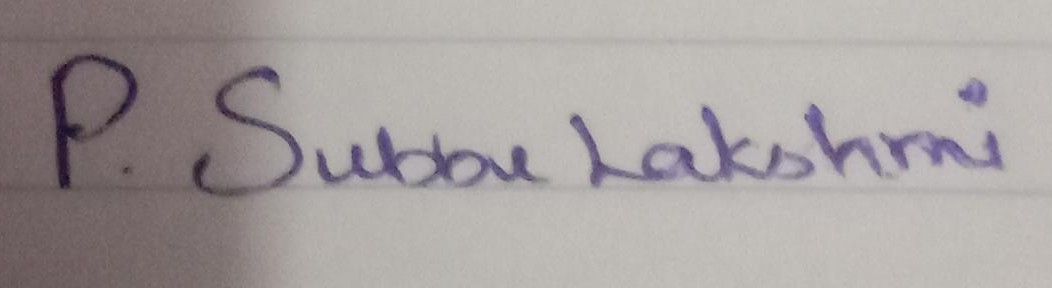 P. Subbu Lakshmi